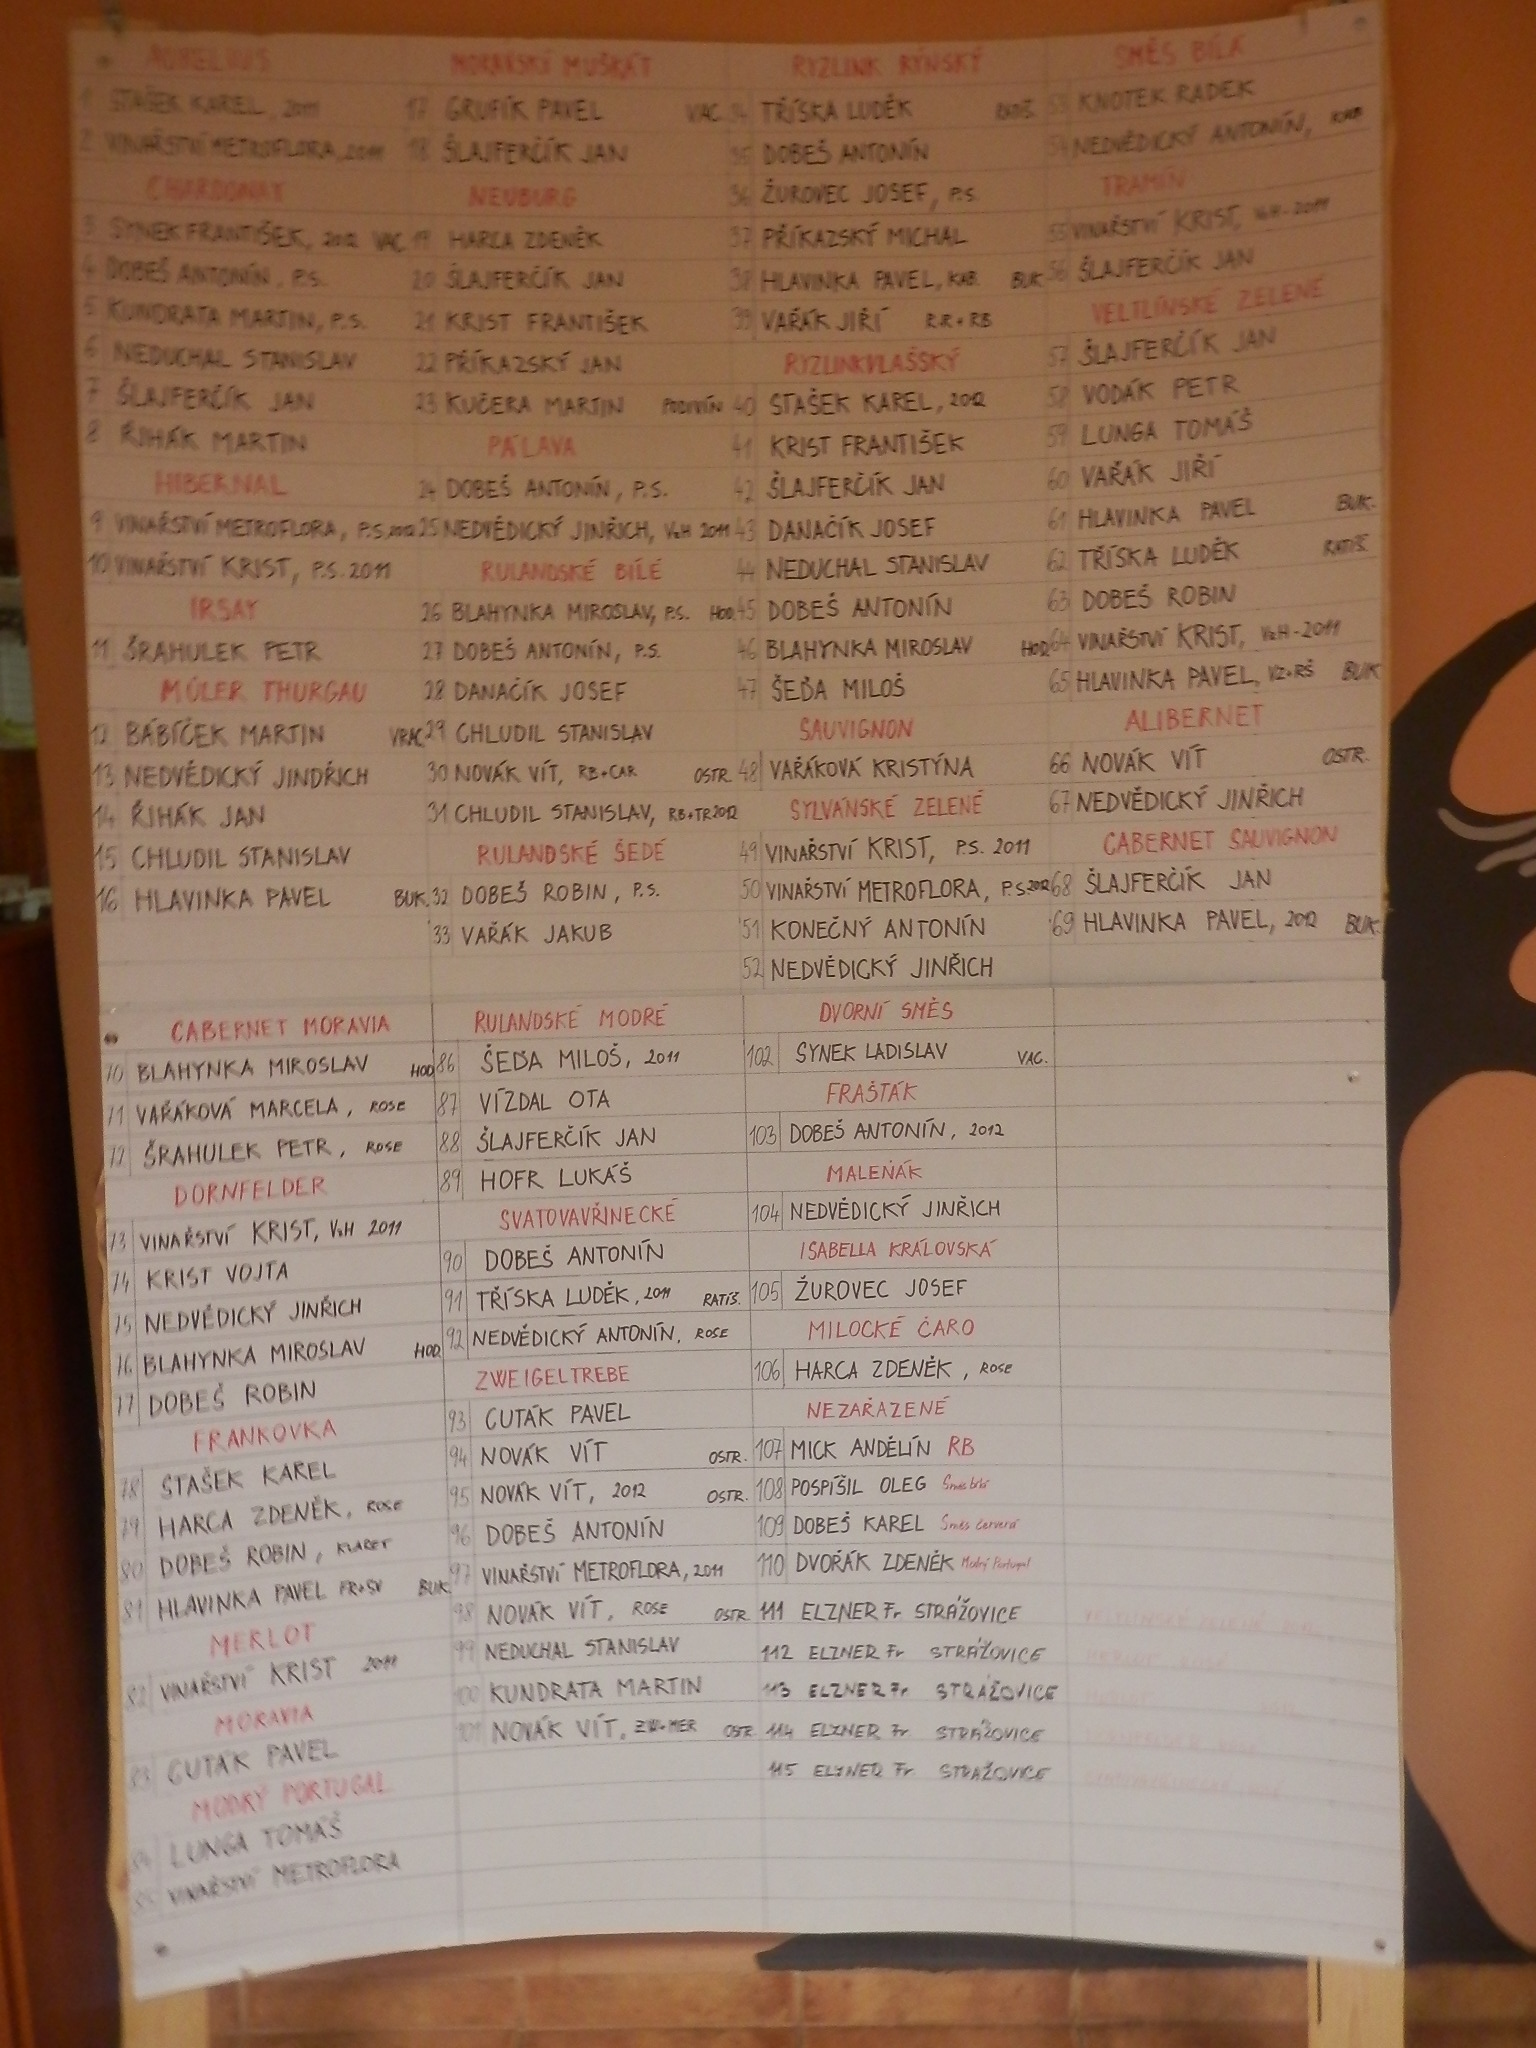 AURELIUS
1 STAŠEK KAREL, 2011
2 VINAŘSTVÍ METROFLORA, 2011
CHARDONAY
3 SYNEK FRANTIŠEK, 2012 VAC.
4 DOBEŠ ANTONÍN, P.S.
5 KUNDRATA MARTIN, P.S.
6 NEDUCHAL STANISLAV
7 ŠLAJFERČÍK JAN
8 ŘIHÁK MARTIN
HIBERNAL
9 VINAŘSTVÍ METROFLORA, P.S. 2012
10 VINAŘSTVÍ KRIST, P.S. 2011
IRSAY
11 ŠRAHULEK PETR
MÚLER THURGAU
12 BÁBÍČEK MARTIN VRAC.
13 NEDVĚDICKÝ JINDŘICH
14 ŘIHÁK JAN
15 CHLUDIL STANISLAV
16 HLAVINKA PAVEL BUK.
MORAVSKÝ MUŠKÁT
17 GRUFÍK PAVEL VAC.
18 ŠLAJFERČÍK JAN
NEUBURG
19 HARCA ZDENĚK
20 ŠLAJFERČÍK JAN
21 KRIST FRANTIŠEK
22 PŘÍKAZSKÝ JAN
23 KUČERA MARTIN PODIVÍN
PÁLAVA
24 DOBEŠ ANTONÍN, P.S.
25 NEDVĚDICKÝ JINŘICH, VzH 2011
RULANDSKÉ BÍLÉ
26 BLAHYNKA MIROSLAV, P.S. HOD.
27 DOBEŠ ANTONÍN, P.S.
28 DANAČÍK JOSEF
29 CHLUDIL STANISLAV
30 NOVÁK VÍT, RB+CAR OSTR.
31 CHLUDIL STANISLAV, RB+TR 2012
RULANDSKÉ ŠEDÉ
32 DOBEŠ ROBIN, P.S.
33 VAŘÁK JAKUB
RYZLINK RÝNSKÝ
34 TŘÍSKA LUDĚK RATIŠ.
35 DOBEŠ ANTONÍN
36 ŽUROVEC JOSEF, P.S.
37 PŘÍKAZSKÝ MICHAL
38 HLAVINKA PAVEL, KAB. BUK
39 VAŘÁK JIŘÍ RR+RB
RYZLINKVLAŠSKÝ
40 STAŠEK KAREL, 2012
41 KRIST FRANTIŠEK
42 ŠLAJFERČÍK JAN
43 DANAČÍK JOSEF
44 NEDUCHAL STANISLAV
45 DOBEŠ ANTONÍN
46 BLAHYNKA MIROSLAV HOD.
47 ŠEĎA MILOŠ
SAUVIGNON
48 VAŘÁKOVÁ KRISTÝNA
SYLVÁNSKÉ ZELENÉ
49 VINAŘSTVÍ KRIST, P.S. 2011
50 VINAŘSTVÍ METROFLORA, P.S. 2012
51 KONEČNÝ ANTONÍN
52 NEDVĚDICKÝ JINŘICH
SMĚS BÍLÁ
53 KNOTEK RADEK
54 NEDVĚDICKÝ ANTONÍN, KAB
TRAMÍN
55 VINAŘSTVÍ KRIST, VzH-2011
56 ŠLAJFERČÍK JAN
VELTLÍNSKÉ ZELENÉ
57 ŠLAJFERČÍK JAN
58 VODÁK PETR
59 LUNGA TOMÁŠ
60 VAŘÁK JIŘÍ
61 HLAVINKA PAVEL BUK.
62 TŘÍSKA LUDĚK RATIŠ.
63 DOBEŠ ROBIN
64 VINAŘSTVÍ KRIST, VzH-2011
65 HLAVINKA PAVEL, VZ+RŠ BUK
ALIBERNET
66 NOVÁK VÍT OSTR.
67 NEDVĚDICKÝ JINŘICH
CABERNET SAUVIGNON
68 ŠLAJFERČÍK JAN
69 HLAVINKA PAVEL, 2012 BUK.
CABERNET MORAVIA
70 BLAHYNKA MIROSLAV HOD.
71 VAŘÁKOVÁ MARCELA, ROSE
72 ŠRAHULEK PETR, ROSE
DORNFELDER
73 VINAŘSTVÍ KRIST, VzH 2011
74 KRIST VOJTA
75 NEDVĚDICKÝ JINŘICH
76 BLAHYNKA MIROSLAV HOD.
77 DOBEŠ ROBIN
FRANKOVKA
78 STAŠEK KAREL
79 HARCA ZDENĚK, ROSE
80 DOBEŠ ROBIN, KLARET
81 HLAVINKA PAVEL FR+SV BUK.
MERLOT
82 VINAŘSTVÍ KRIST 2011
MORAVIA
83 CUTÁK PAVEL
MODRÝ PORTUGAL
84 LUNGA TOMÁŠ
85 VINAŘSTVÍ METROFLORA
RULANDSKÉ MODRÉ
86 ŠEĎA MILOŠ, 2011
87 VÍZDAL OTA
88 ŠLAJFERČÍK JAN
89 HOFR LUKÁŠ
SVATOVAVŘINECKÉ
90 DOBEŠ ANTONÍN
91 TŘÍSKA LUDĚK, 2011 RATIŠ.
92 NEDVĚDICKÝ ANTONÍN, ROSE
ZWEIGELTREBE
93 CUTÁK PAVEL
94 NOVÁK VÍT OSTR.
95 NOVÁK VÍT, 2012 OSTR.
96 DOBEŠ ANTONÍN
97 VINAŘSTVÍ METROFLORA, 2011
98 NOVÁK VÍT, ROSE OSTR.
99 NEDUCHAL STANISLAV
100 KUNDRATA MARTIN
101 NOVÁK VÍT, ZW+MER OSTR.
DVORNÍ SMĚS
102 SYNEK LADISLAV VAC.
FRAŠTÁK
103 DOBEŠ ANTONÍN, 2012
MALEŇÁK
104 NEDVĚDICKÝ JINŘICH
ISABELLA KRÁLOVSKÁ
105 ŽUROVEC JOSEF
MILOCKÉ ČARO
106 HARCA ZDENĚK, ROSE
NEZAŘAZENÉ
107 MICK ANDĚLÍN RB
108 POSPÍŠIL OLEG Směs bílá
109 DOBEŠ KAREL Směs červená
110 DVOŘÁK ZDENĚK Modrý Portugal
111 ELZNER Fr STRÁŽOVICE
112 ELZNER Fr STRÁŽOVICE
113 ELZNER Fr STRÁŽOVICE
114 ELZNER Fr STRÁŽOVICE
115 ELZNER Fr STRAŽOVICE